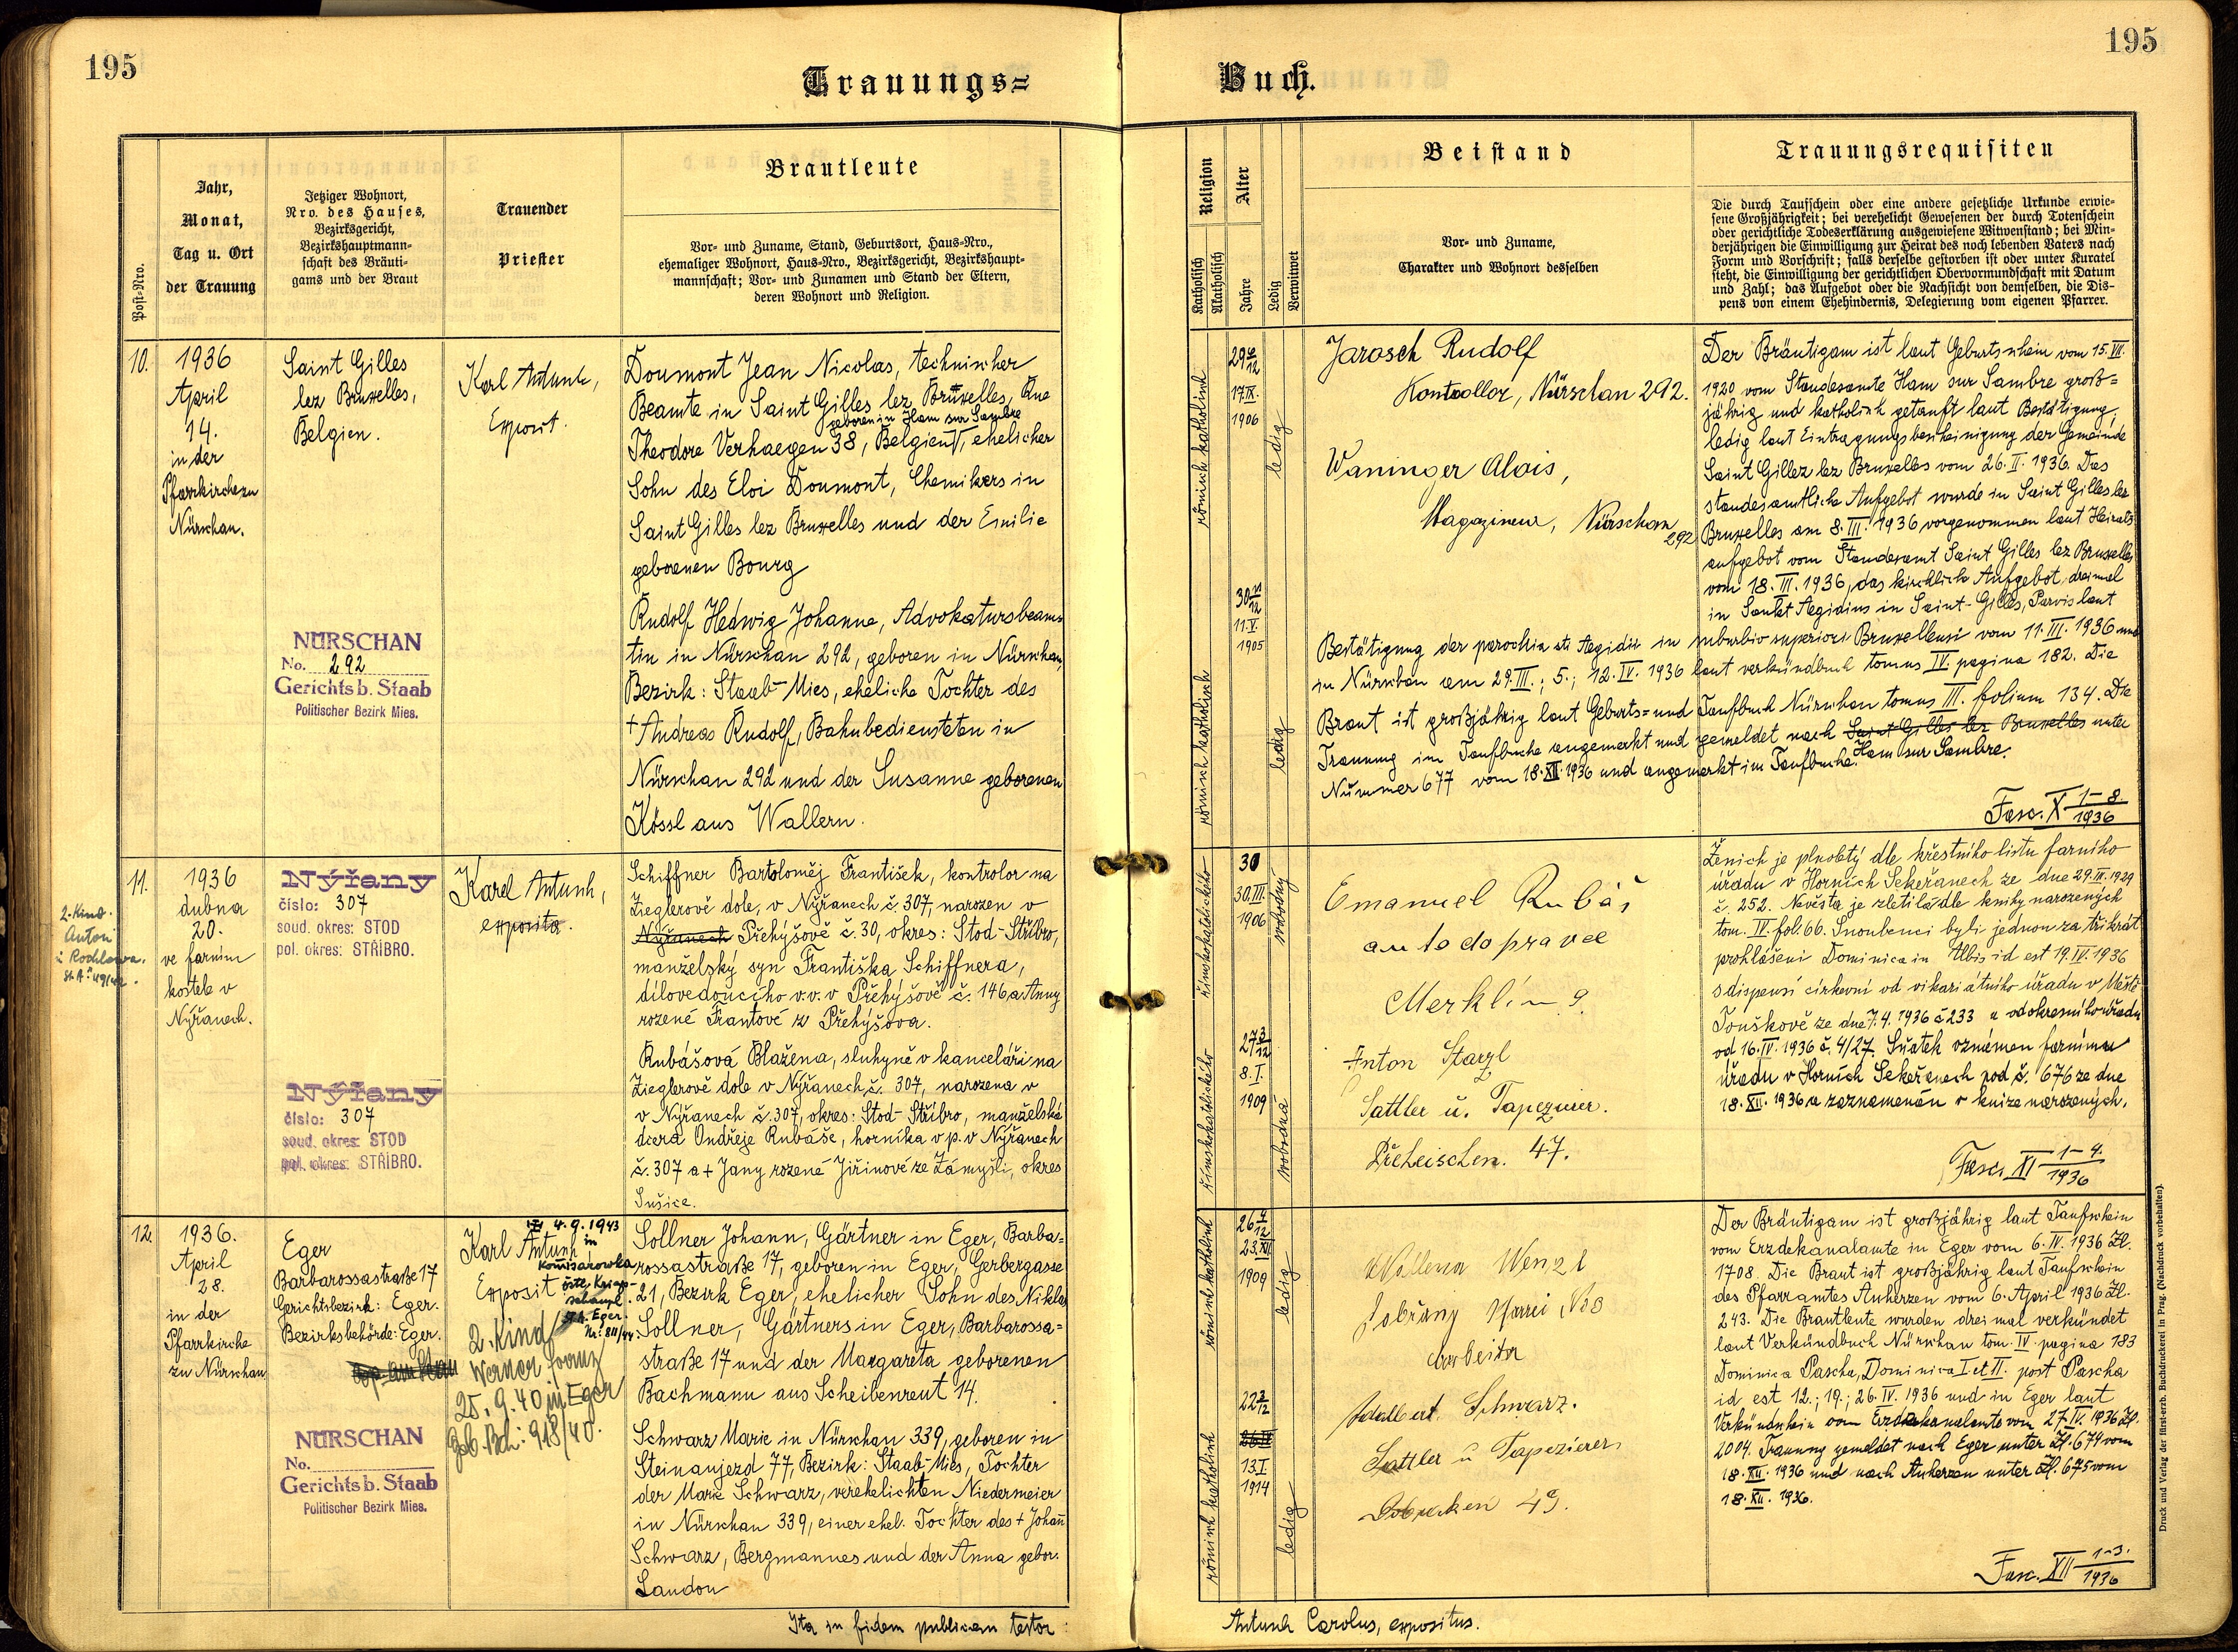 195
195
Trauungs=
Buch.
Post-Nro.
Jahr,
Monat,
Tag u. Ort
der Trauung
Jetziger Wohnort,
Nro. des Hauses,
Bezirksgericht,
Bezirkshauptmann-
schaft des Bräuti-
gams und der Braut
Trauender
Priester
Brautleute
Vor- und Zuname, Stand, Geburtsort, Haus-Nro.,
ehemaliger Wohnort, Haus-Nro., Bezirksgericht, Bezirkshaupt-
mannschaft; Vor- und Zunamen und Stand der Eltern,
deren Wohnort und Religion.
Religion
Katholisch
Akatholisch
Alter
Jahre
Ledig
Verwitwet
Beistand
Vor- und Zuname,
Charakter und Wohnort desselben
Trauungsrequisiten
Die durch Taufschein oder eine andere gesetzliche Urkunde erwie-
sene Großjährigkeit; bei verehelicht Gewesenen der durch Totenschein
oder gerichtliche Todeserklärung ausgewiesene Witwenstand; bei Min-
derjährigen die Einwilligung zur Heirat des noch lebenden Vaters nach
Form und Vorschrift; falls derselbe gestorben ist oder unter Kuratel
steht, die Einwilligung der gerichtlichen Obervormundschaft mit Datum
und Zahl; das Aufgebot oder die Nachsicht von demselben, die Dis-
pens von einem Ehehindernis, Delegierung vom eigenen Pfarrer.
10.
1936
April
14.
in der
Pfarrkirche zu
Nürschan.
Saint Gilles
lez Bruxelles,
Belgien.
NÜRSCHAN
No. 292
Gerichtsb. Staab
Politischer Bezirk Mies.
Karl Antusch,
Exposit.
Doumont Jean Nicolas, technischer
Beamte in Saint Gilles lez Bruxelles, Rue
geboren in Ham sur Sambre
Theodore Verhaegen 38, Belgien, ehelicher
Sohn des Eloi Doumont, Chemikers in
Saint Gilles lez Bruxelles und der Emilie
geborenen Bourg
Rudolf Hedwig Johanna, Advokatursbeam=
tin in Nürschan 292, geboren in Nürschan,
Bezirk: Staab-Mies, eheliche Tochter des
+ Andreas Rudolf, Bahnbediensteten in
Nürschan 292 und der Susanne geborenen
Kössl aus Wallern.
römisch katholisch
29 6/12
17.IX.
1906
ledig
römisch katholisch
30 11/12
11.V.
1905
ledig
Jarosch Rudolf
Kontrollor, Nürschan 292.
Waninger Alois,
Magazineur, Nürschan
292
Der Bräutigam ist laut Geburtsschein vom 15.VII.
1920 vom Standesamte Ham sur Sambre groß=
jährig und katholisch getauft laut Bestätigung,
ledig laut Eintragungsbescheinigung der Gemeinde
Saint Gillez lez Bruxelles vom 26.II.1936. Das
standesamtliche Aufgebot wurde in Saint Gilles lez
Bruxelles am 8.III.1936 vorgenommen laut Heirats
aufgebot vom Standesamt Saint Gilles lez Bruxelles
vom 18.III.1936, das kirchliche Aufgebot dreimal
in Sankt Aegidius in Saint-Gilles, Parvis laut
Bestätigung der parochia sti Aegidii in suburbio superiori Bruxellensi vom 11.III.1936 und
in Nürschan am 29.III.; 5.; 12.IV.1936 laut verkündbuch tomus IV. pagina 182. Die
Braut ist großjährig laut Geburts= und Taufbuch Nürschan tomus III. folium 134. Die
Trauung im Taufbuche angemerkt und gemeldet nach Saint Gilles lez Bruxelles unter
Ham sur Sambre.
Nummer 677 vom 18.XII.1936 und angemerkt im Taufbuche.
Fasc. X 1-8/1936
11.
2. Kind
Anton
1936
dubna
20.
ve farním
kostele v
Nýřanech.
Nýřany
číslo: 307
soud. okres: STOD
pol. okres: STŘÍBRO.
Nýřany
číslo: 307
soud. okres: STOD
pol. okres: STŘÍBRO.
Karel Antusch,
exposita.
Schiffner Bartoloměj František, kontrolor na
Zieglerově dole, v Nýřanech č. 307, narozen v
Nýřanech Přehýšově č. 30, okres: Stod-Stříbro,
manželský syn Františka Schiffnera,
dílovedoucího v.v. v Přehýšově č. 146 a Anny
rozené Frantové z Přehýšova.
Rubášová Blažena, sluhyně v kanceláři na
Zieglerově dole v Nýřanech č. 307, narozena v
v Nýřanech č. 307, okres: Stod-Stříbro, manželská
dcera Ondřeje Rubáše, horníka v p. v Nýřanech
č. 307 a + Jany rozené Jiřinové ze Zámyšli, okres
Sušice.
římskokatolického
30
30.III.
1906
svobodný
římskokatolického
27 3/12
8.I.
1909
svobodná
Emanuel Rubáš
autodopravce
Merklín 9.
Anton Starzl
Sattler u. Tapezierer.
Přeheischen. 47.
Ženich je plnoletý dle křestního listu farního
úřadu v Horních Sekeřanech ze dne 29.III.1929
č. 252. Nevěsta je zletilá dle knihy narozených
tom. IV. fol. 66. Snoubenci byli jednou za třikrát
prohlášeni Dominica in Albis id est 19.IV.1936
s dispensí církevní od vikariátního úřadu v Městě
Touškově ze dne 7.4.1936 č 233 a od okresního úřadu
od 16.IV.1936 č. 4/27. Sňatek oznámen farnímu
úřadu v Horních Sekeřanech pod č. 676 ze dne
18.XII.1936 a zaznamenán v knize narozených.
Fasc. XI 1-4./1936
12.
1936.
April
28.
in der
Pfarrkirche
zu Nürschan
Eger
Barbarossastraße 17
Gerichtsbezirk: Eger.
Bezirksbehörde: Eger.
NÜRSCHAN
No.
Gerichtsb. Staab
Politischer Bezirk Mies.
Karl Antusch
Exposit
4.9.1943
in
Komisarowka
St.A. Eger.
Nr. 811/44.
2. Kind
Werner Franz
25.9.40 in Eger
Geb. Bch: 918/40.
Sollner Johann, Gärtner in Eger, Barba=
rossastraße 17, geboren in Eger, Gerbergasse
21, Bezirk Eger, ehelicher Sohn des Niklas
Sollner, Gärtners in Eger, Barbarossa=
straße 17 und der Margareta geborenen
Bachmann aus Scheibenreut 14.
Schwarz Marie in Nürschan 339, geboren in
Steinaujezd 77, Bezirk: Staab-Mies, Tochter
der Marie Schwarz, verehelichten Niedermeier
in Nürschan 339, einer ehel. Tochter des + Johann
Schwarz, Bergmannes und der Anna gebor.
Landon
römisch katholisch
26 4/12
23.XII.
1909
ledig
römisch katholisch
22 3/12
13.I
1914
ledig
Wenzl
Arbeiter
Adalbert Schwarz.
Sattler u Tapezierer
49.
Der Bräutigam ist großjährig laut Taufschein
vom Erzdekanalamte in Eger vom 6.IV.1936 Zl.
1708. Die Braut ist großjährig laut Taufschein
des Pfarramtes Auherzen vom 6. April 1936 Zl.
243. Die Brautleute wurden dreimal verkündet
laut Verkündbuch Nürschan tom. IV pagina 183
Dominica Pascha, Dominica I et II. post Pascha
id est 12.; 19.; 26.IV.1936 und in Eger laut
Verkündschein vom Erzdekanalamte vom 27.IV.1936 Zl.
2004. Trauung gemeldet nach Eger unter Zl. 674 vom
18.XII.1936 und nach Auherzen unter Zl. 675 vom
18.XII.1936.
Fasc. XII 1-3./1936
Ita in fidem publicam testor:
Antusch Carolus, expositus.
Druck und Verlag der fürst-erzb. Buchdruckerei in Prag. (Nachdruck vorbehalten).